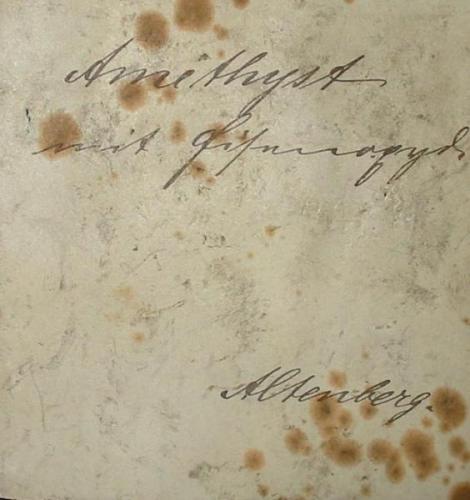 Amethyst
mit Eisenoxyd
Altenberg.